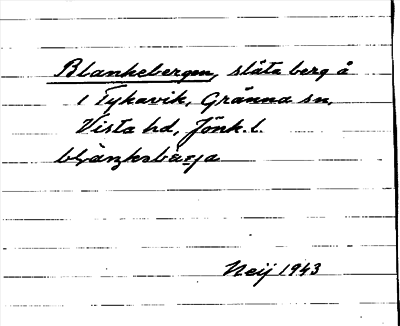 Blankebergen, släta berg å
1 Tykavik, Gränna sn,
Vista hd, Jönk. l.
Neij 1943